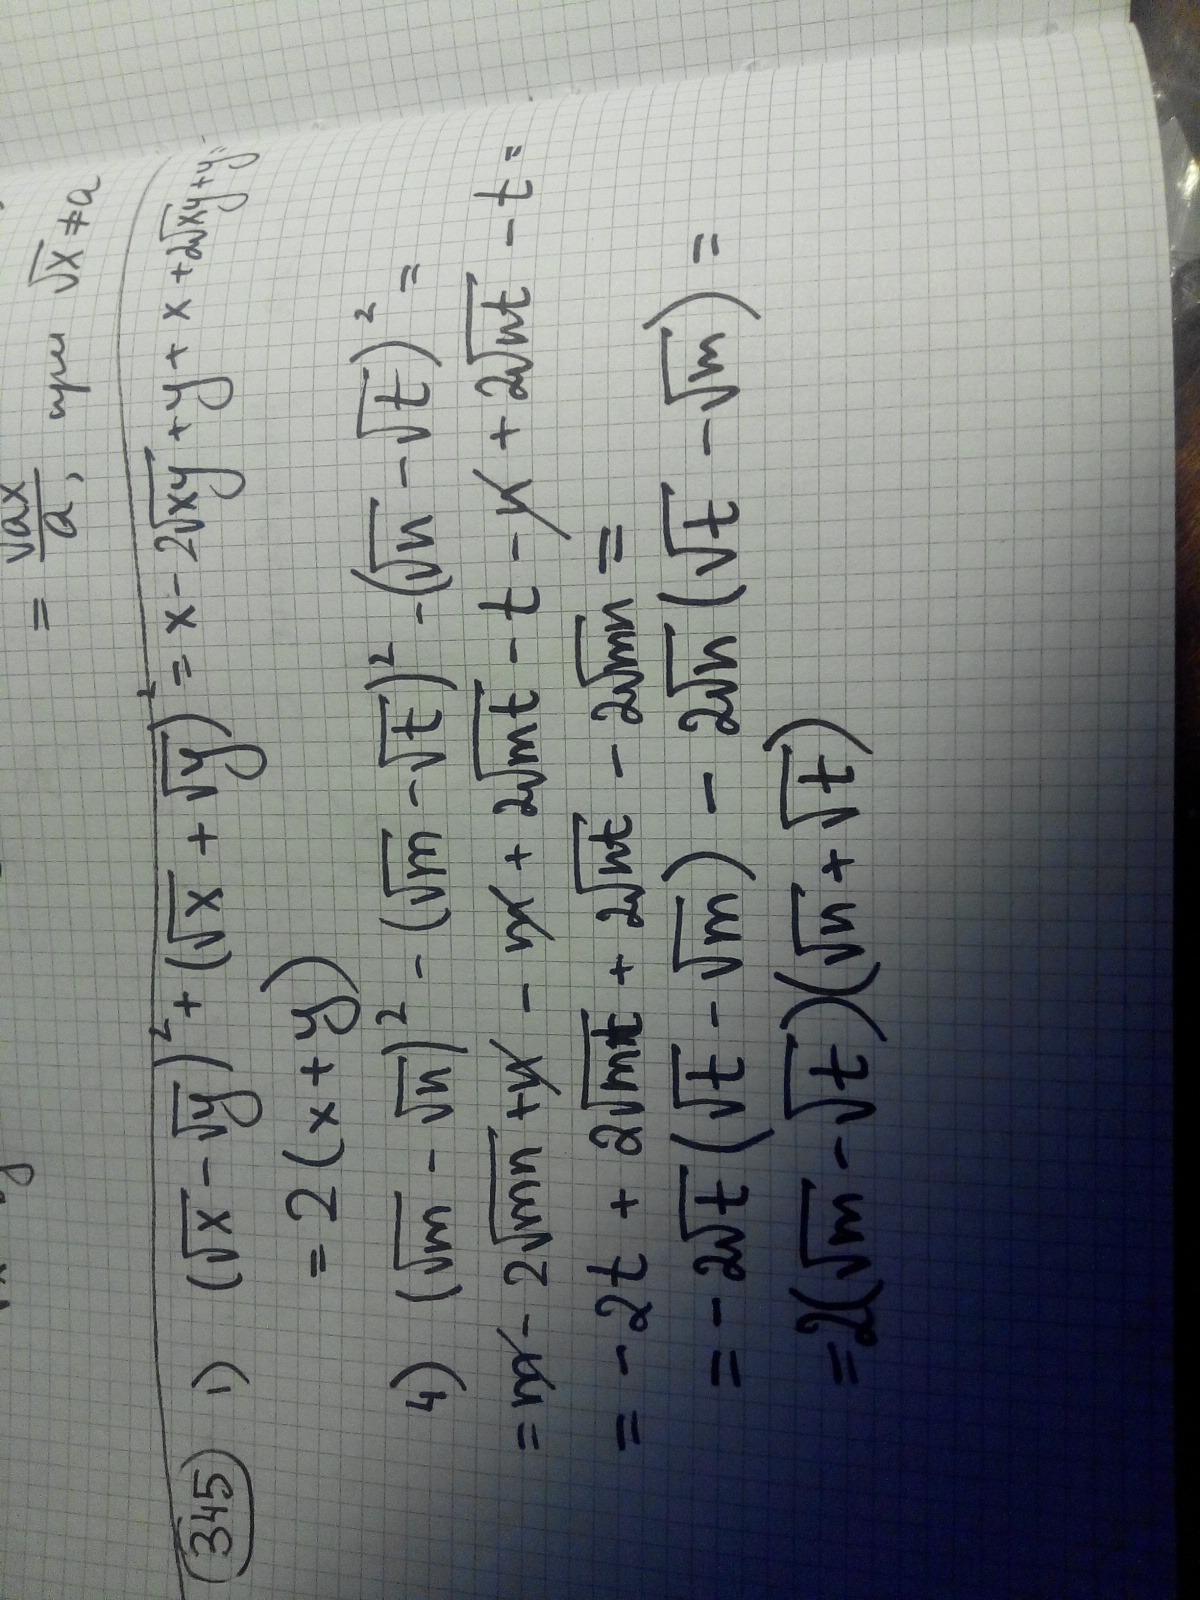 = √ax/a, при √x ≠ a
345 1) (√x - √y)² + (√x + √y)² = x - 2√xy + y + x + 2√xy + y =
= 2(x + y)
4) (√m - √n)² - (√m - √t)² - (√n - √t)² =
= m - 2√mn + n - m + 2√mt - t - n + 2√nt - t =
= - 2t + 2√mt + 2√nt - 2√mn =
= - 2√t (√t - √m) - 2√n (√t - √m) =
= 2(√m - √t)(√n + √t)